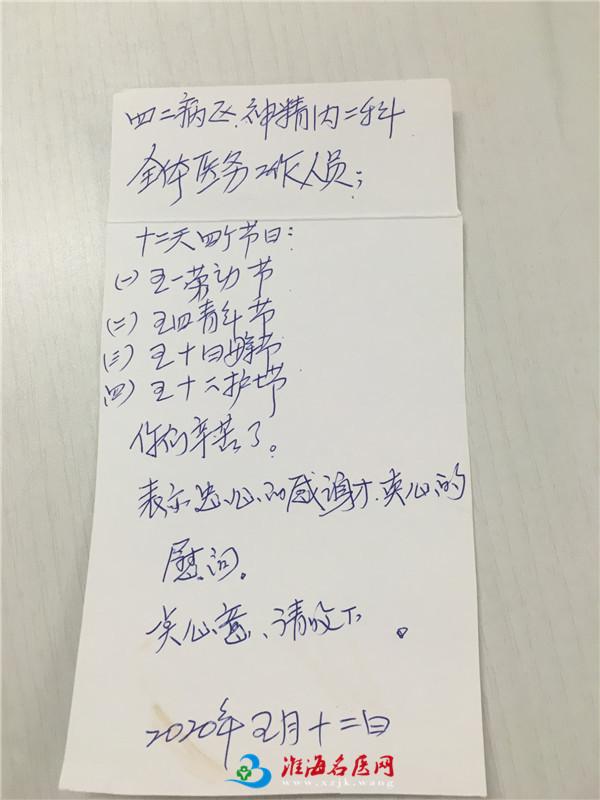 四二病区.神精内二科
全体医务工作人员;
十二天四个节日:
(一)五一劳动节
(二)五四青年节
(三)五十日母亲节
(四)五十二护士节
你们辛苦了。
表示忠心的感谢才.衷心的
慰问。
一点心意、请收下。
2020年五月十二日
淮海名医网
www.xzjk.wang